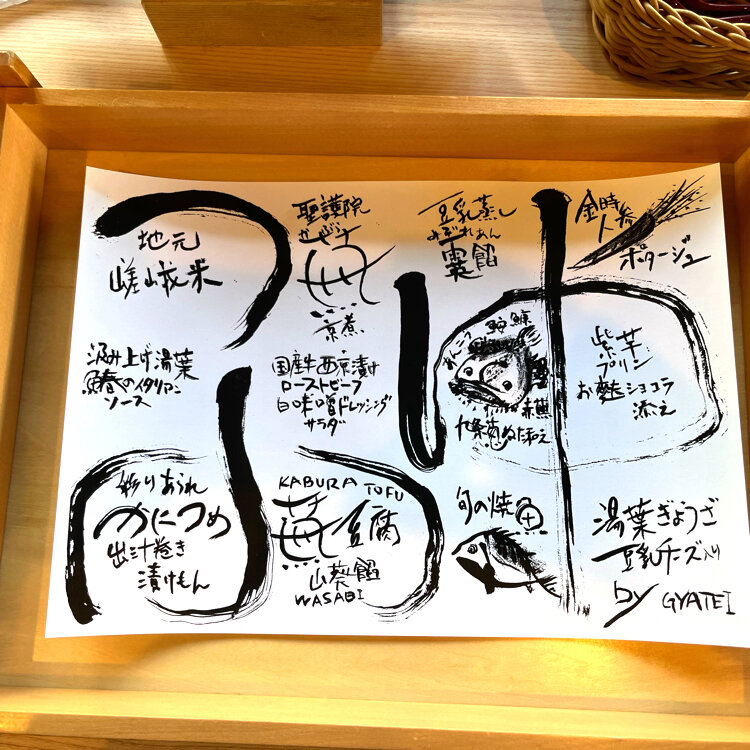 地元
嵯峨米
聖護院
かぶら
京煮
豆乳蒸し
みぞれあん
餡
金時人参
ポタージュ
汲み上げ湯葉
イタリアン
ソース
国産牛西京漬け
ローストビーフ
白味噌ドレッシング
サラダ
あんこう 鮟鱇
赤蕪
九条葱ぬた和え
紫芋
プリン
お麩ショコラ
添え
彩りあられ
かにつめ
出汁巻き
漬けもん
KABURA TOFU
豆腐
山葵餡
WASABI
旬の焼魚
湯葉ぎょうざ
豆乳チーズ入り
by GYATEI